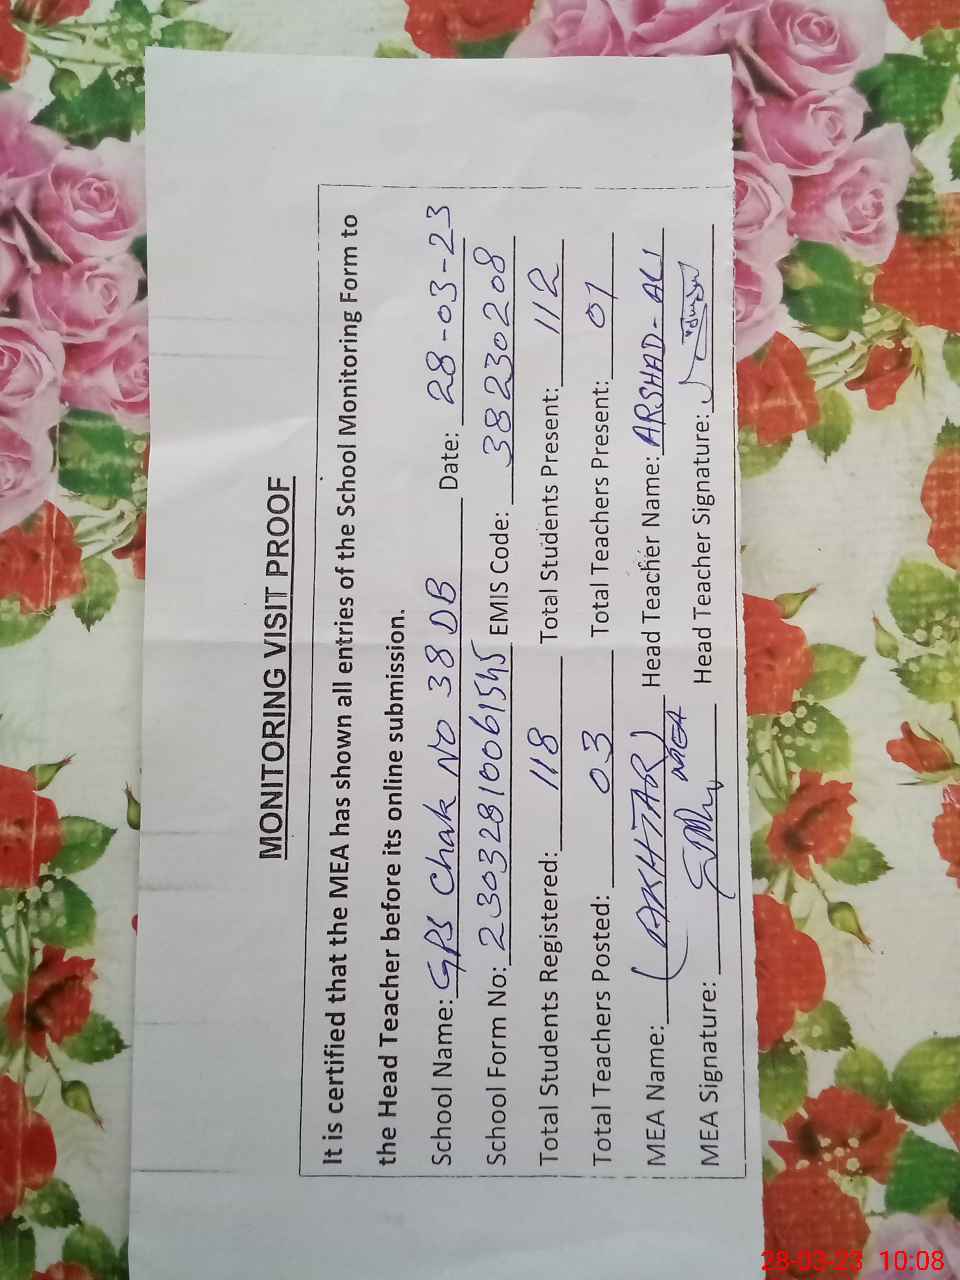 MONITORING VISIT PROOF
It is certified that the MEA has shown all entries of the School Monitoring Form to
the Head Teacher before its online submission.
School Name: GPS Chak No 38 DB Date: 28-03-23
School Form No: 23032810061545 EMIS Code: 38230208
Total Students Registered: 118 Total Students Present: 112
Total Teachers Posted: 03 Total Teachers Present: 01
MEA Name: (AKHTAR) Head Teacher Name: ARSHAD-ALI
MEA Signature: MEA Head Teacher Signature:
28-03-23 10:08